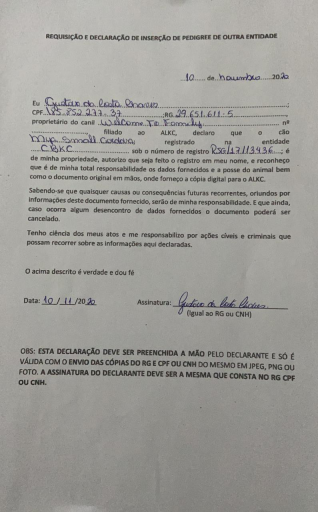 REQUISIÇÃO E DECLARAÇÃO DE INSERÇÃO DE PEDIGREE DE OUTRA ENTIDADE
10 de novembro 2020
Eu Gustavo da Costa
CPF 185.852.277-37 RG 29.651.611-5
proprietário do canil Welcome To Family nº
filiado ao ALKC, declaro que o cão
Small registrado na entidade
CBKC sob o número de registro RSG/17/13436 ; é
de minha propriedade, autorizo que seja feito o registro em meu nome, e reconheço
que é de minha total responsabilidade os dados fornecidos e a posse do animal bem
como o documento original em mãos, onde forneço a cópia digital para o ALKC.
Sabendo-se que quaisquer causas ou consequências futuras recorrentes, oriundos por
informações deste documento fornecido, serão de minha responsabilidade. E que ainda,
caso ocorra algum desencontro de dados fornecidos o documento poderá ser
cancelado.
Tenho ciência dos meus atos e me responsabilizo por ações cíveis e criminais que
possam recorrer sobre as informações aqui declaradas.
O acima descrito é verdade e dou fé
Data: 10/11/2020 Assinatura: Gustavo da Costa
(Igual ao RG ou CNH)
OBS: ESTA DECLARAÇÃO DEVE SER PREENCHIDA A MÃO PELO DECLARANTE E SÓ É
VÁLIDA COM O ENVIO DAS CÓPIAS DO RG E CPF OU CNH DO MESMO EM JPEG, PNG OU
FOTO. A ASSINATURA DO DECLARANTE DEVE SER A MESMA QUE CONSTA NO RG CPF
OU CNH.